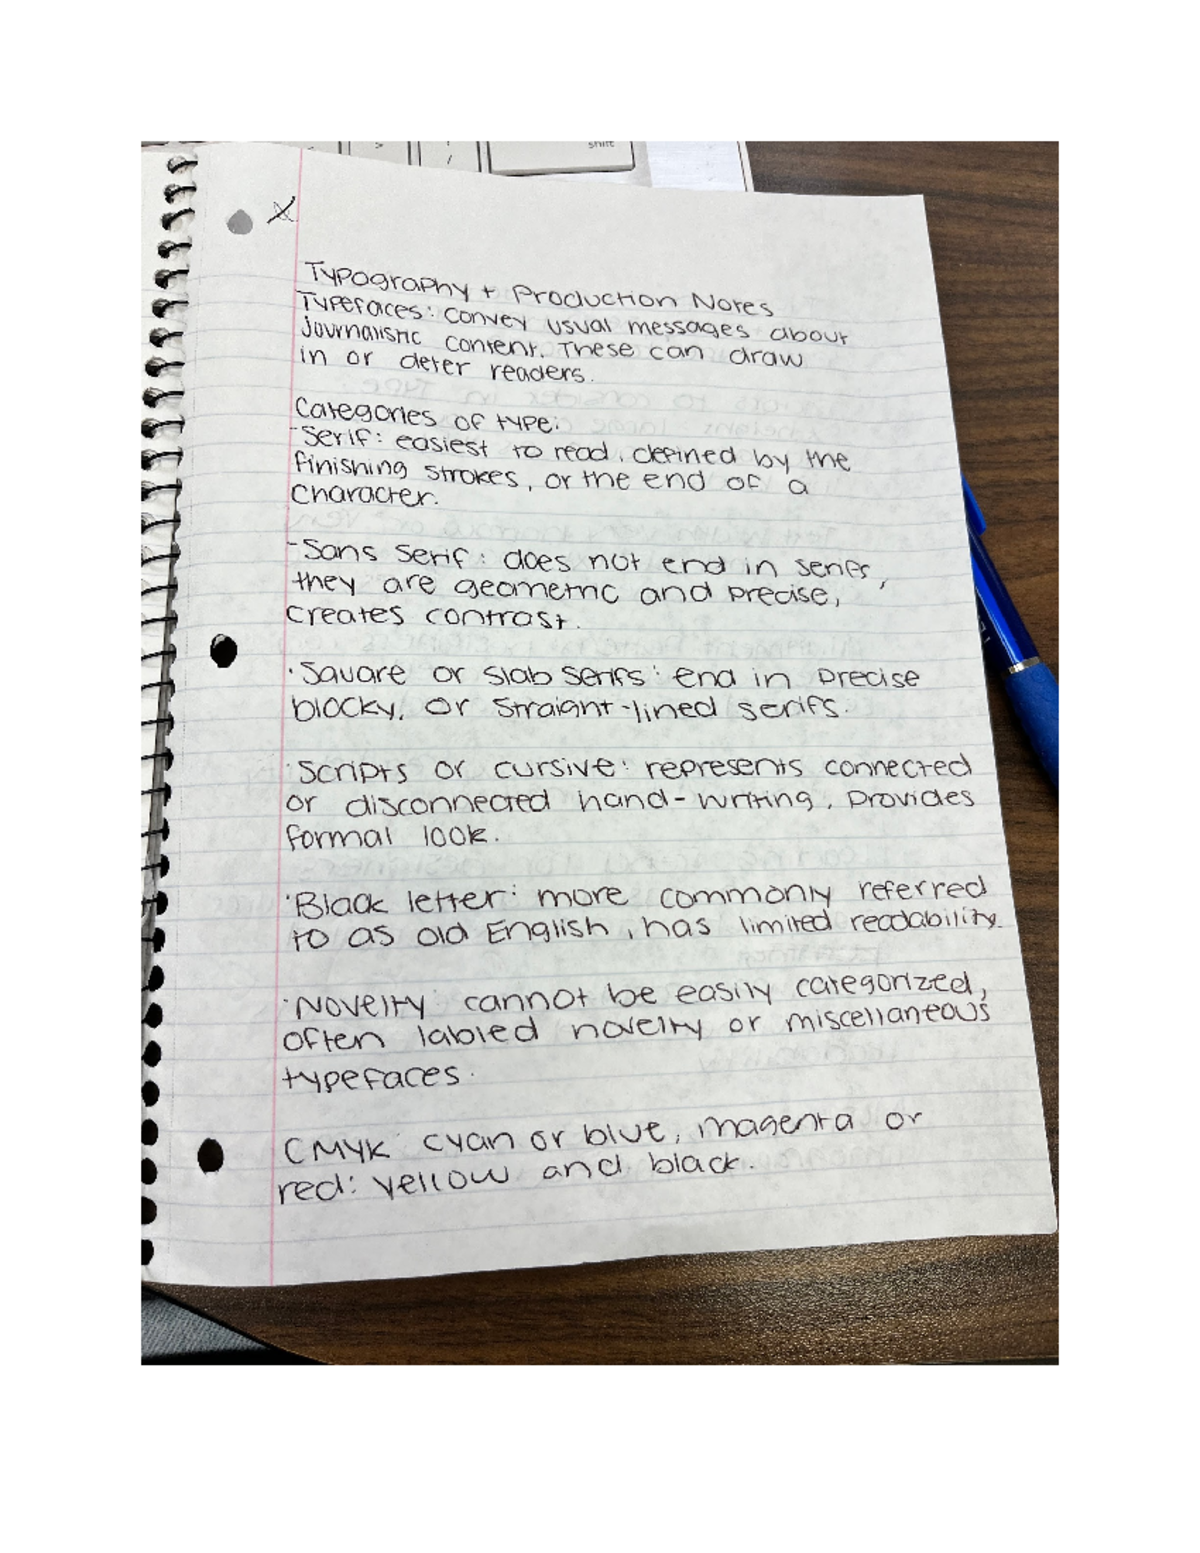 shift
Typography + Production Notes
Typefaces: convey usual messages about
journalistic content. These can draw
in or deter readers.
Categories of type:
-Serif: easiest to read, defined by the
finishing strokes, or the end of a
character.
-Sans serif: does not end in serifs,
they are geometric and precise,
creates contrast.
·Square or slab serifs: end in precise
blocky, or straight-lined serifs.
·Scripts or cursive: represents connected
or disconnected hand-writing, provides
formal look.
·Black letter: more commonly referred
to as old English, has limited readability.
·Novelty: cannot be easily categorized,
often labled novelty or miscellaneous
typefaces.
CMYK: cyan or blue, magenta or
red: yellow and black.